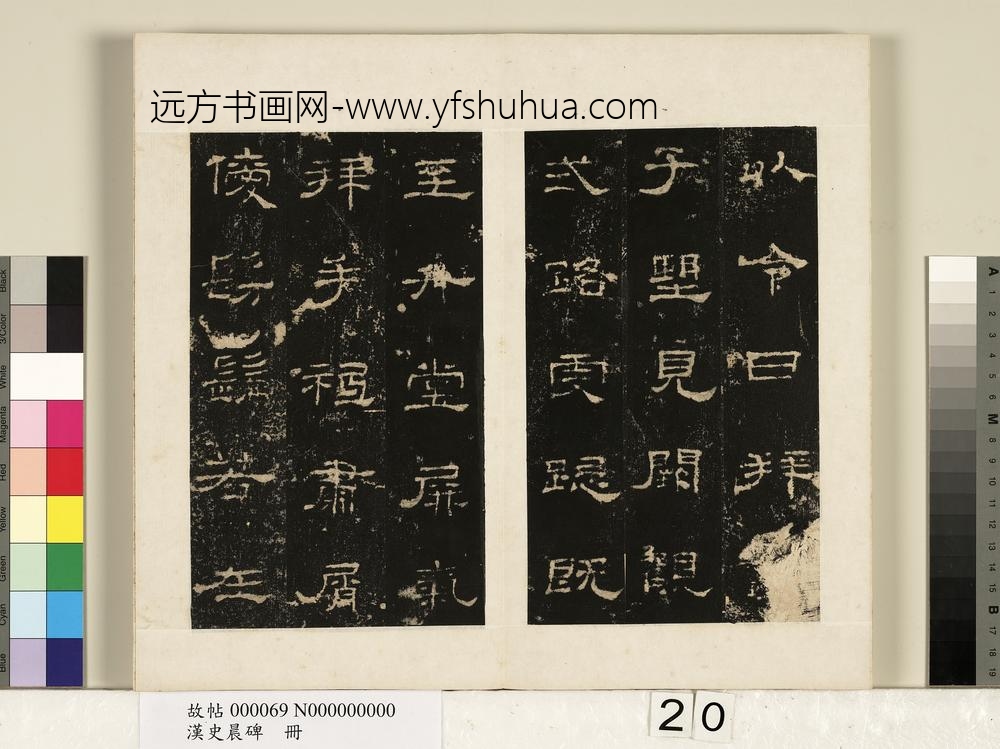 远方书画网-www.yfshuhua.com
以令日拜
子望見闕觀
式路虔跽既
至升堂屏氣
拜手祗肅屑
僾髣髴若在
Black
3/Color
White
Magenta
Red
Yellow
Green
Cyan
Blue
A 1 2 3 4 5 6 M 8 9 10 11 12 13 14 15 B 17 18 19
故帖 000069 N000000000
漢史晨碑 冊
20